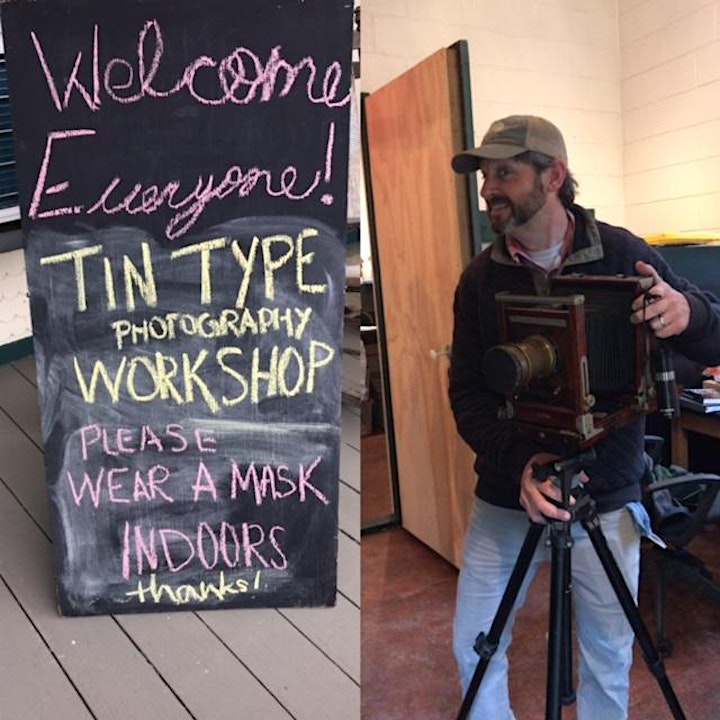 Welcome
Everyone!
TIN TYPE
PHOTOGRAPHY
WORKSHOP
PLEASE
WEAR A MASK
INDOORS
thanks!